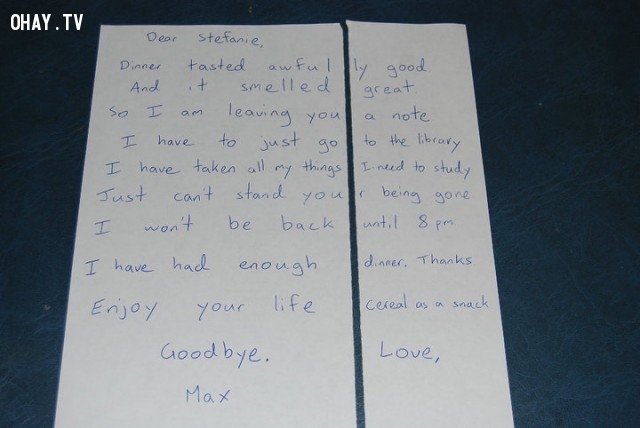 OHAY.TV
Dear Stefanie,
Dinner tasted awfully good
And it smelled great
So I am leaving you a note
I have to just go to the library
I have taken all my things I need to study
Just can't stand your being gone
I won't be back until 8 pm
I have had enough dinner. Thanks
Enjoy your life cereal as a snack
Goodbye. Love,
Max